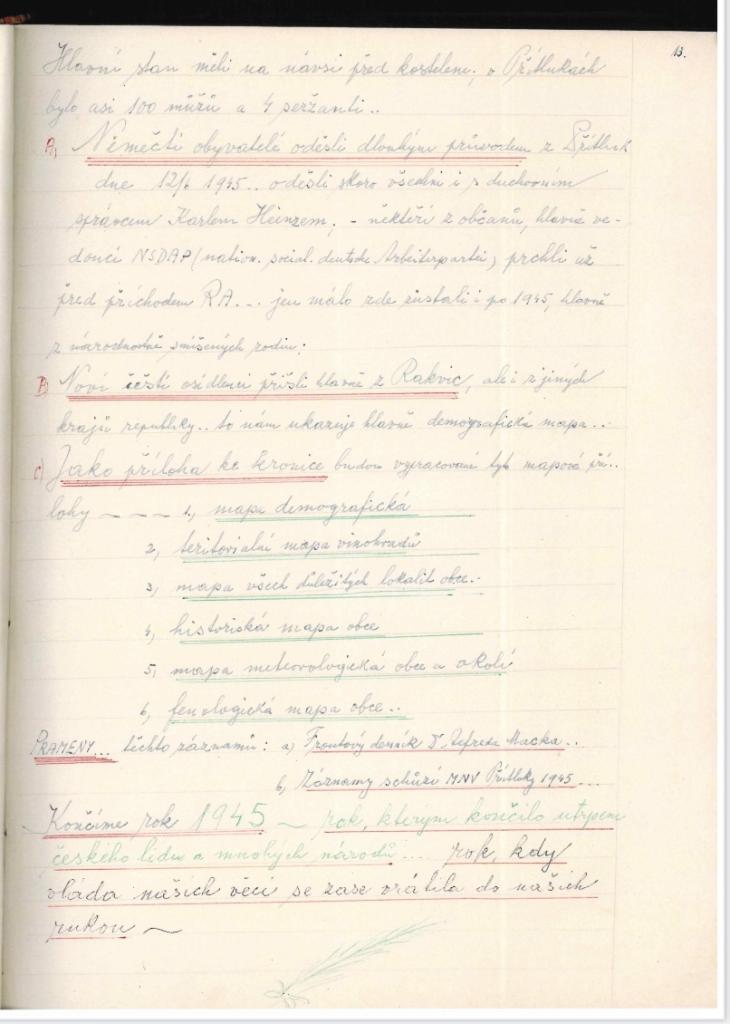 13.
Hlavní stan měli na návsi před kostelem; v Přítlukách
bylo asi 100 mužů a 4 seržanti..
A, Němečtí obyvatelé odešli dlouhým průvodem z Přítluk
dne 12/6 1945.. odešli skoro všichni i s duchovním
správcem Karlem Heinzem; - někteří z občanů, hlavně ve-
doucí NSDAP (nation. social. deutsche Arbeiterpartei) prchli už
před příchodem RA... jen málo zde zůstali i po 1945, hlavně
z národnostně smíšených rodin;
B) Noví čeští osídlenci přišli hlavně z Rakvic, ale i z jiných
krajů republiky.. to nám ukazuje hlavně demografická mapa..
C) Jako příloha ke kronice budou vypracované tyto mapové pří..
lohy ---- 1, mapa demografická
2, teritoriální mapa vinohradů
3, mapa všech důležitých lokalit obce..
4, historiská mapa obce
5, mapa meteorologická obce a okolí
6, fenologická mapa obce..
PRAMENY... těchto záznamů: a) Frontový denník Macka..
b, Záznamy schůzí MNV Přítluky 1945...
Končíme rok 1945 ~ rok, kterým končilo utrpení
českého lidu a mnohých národů.... rok, kdy
vláda našich věcí se zase vrátila do našich
rukou ~